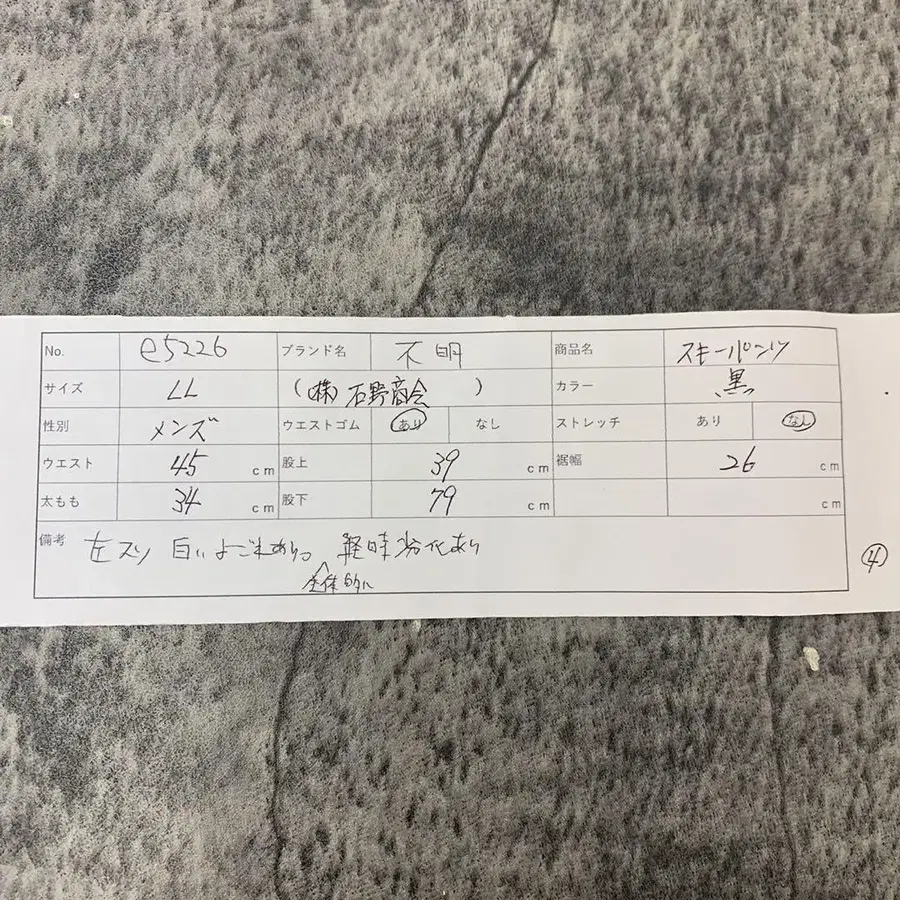 No. e5226 ブランド名 不明 商品名 スキーパンツ
サイズ LL (㈱石野商会 ) カラー 黒
性別 メンズ ウエストゴム あり なし ストレッチ あり なし
ウエスト 45 cm 股上 39 cm 裾幅 26 cm
太もも 34 cm 股下 79 cm cm
備考 左スソ 白いよごれあり。 経時劣化あり
全体的に
④